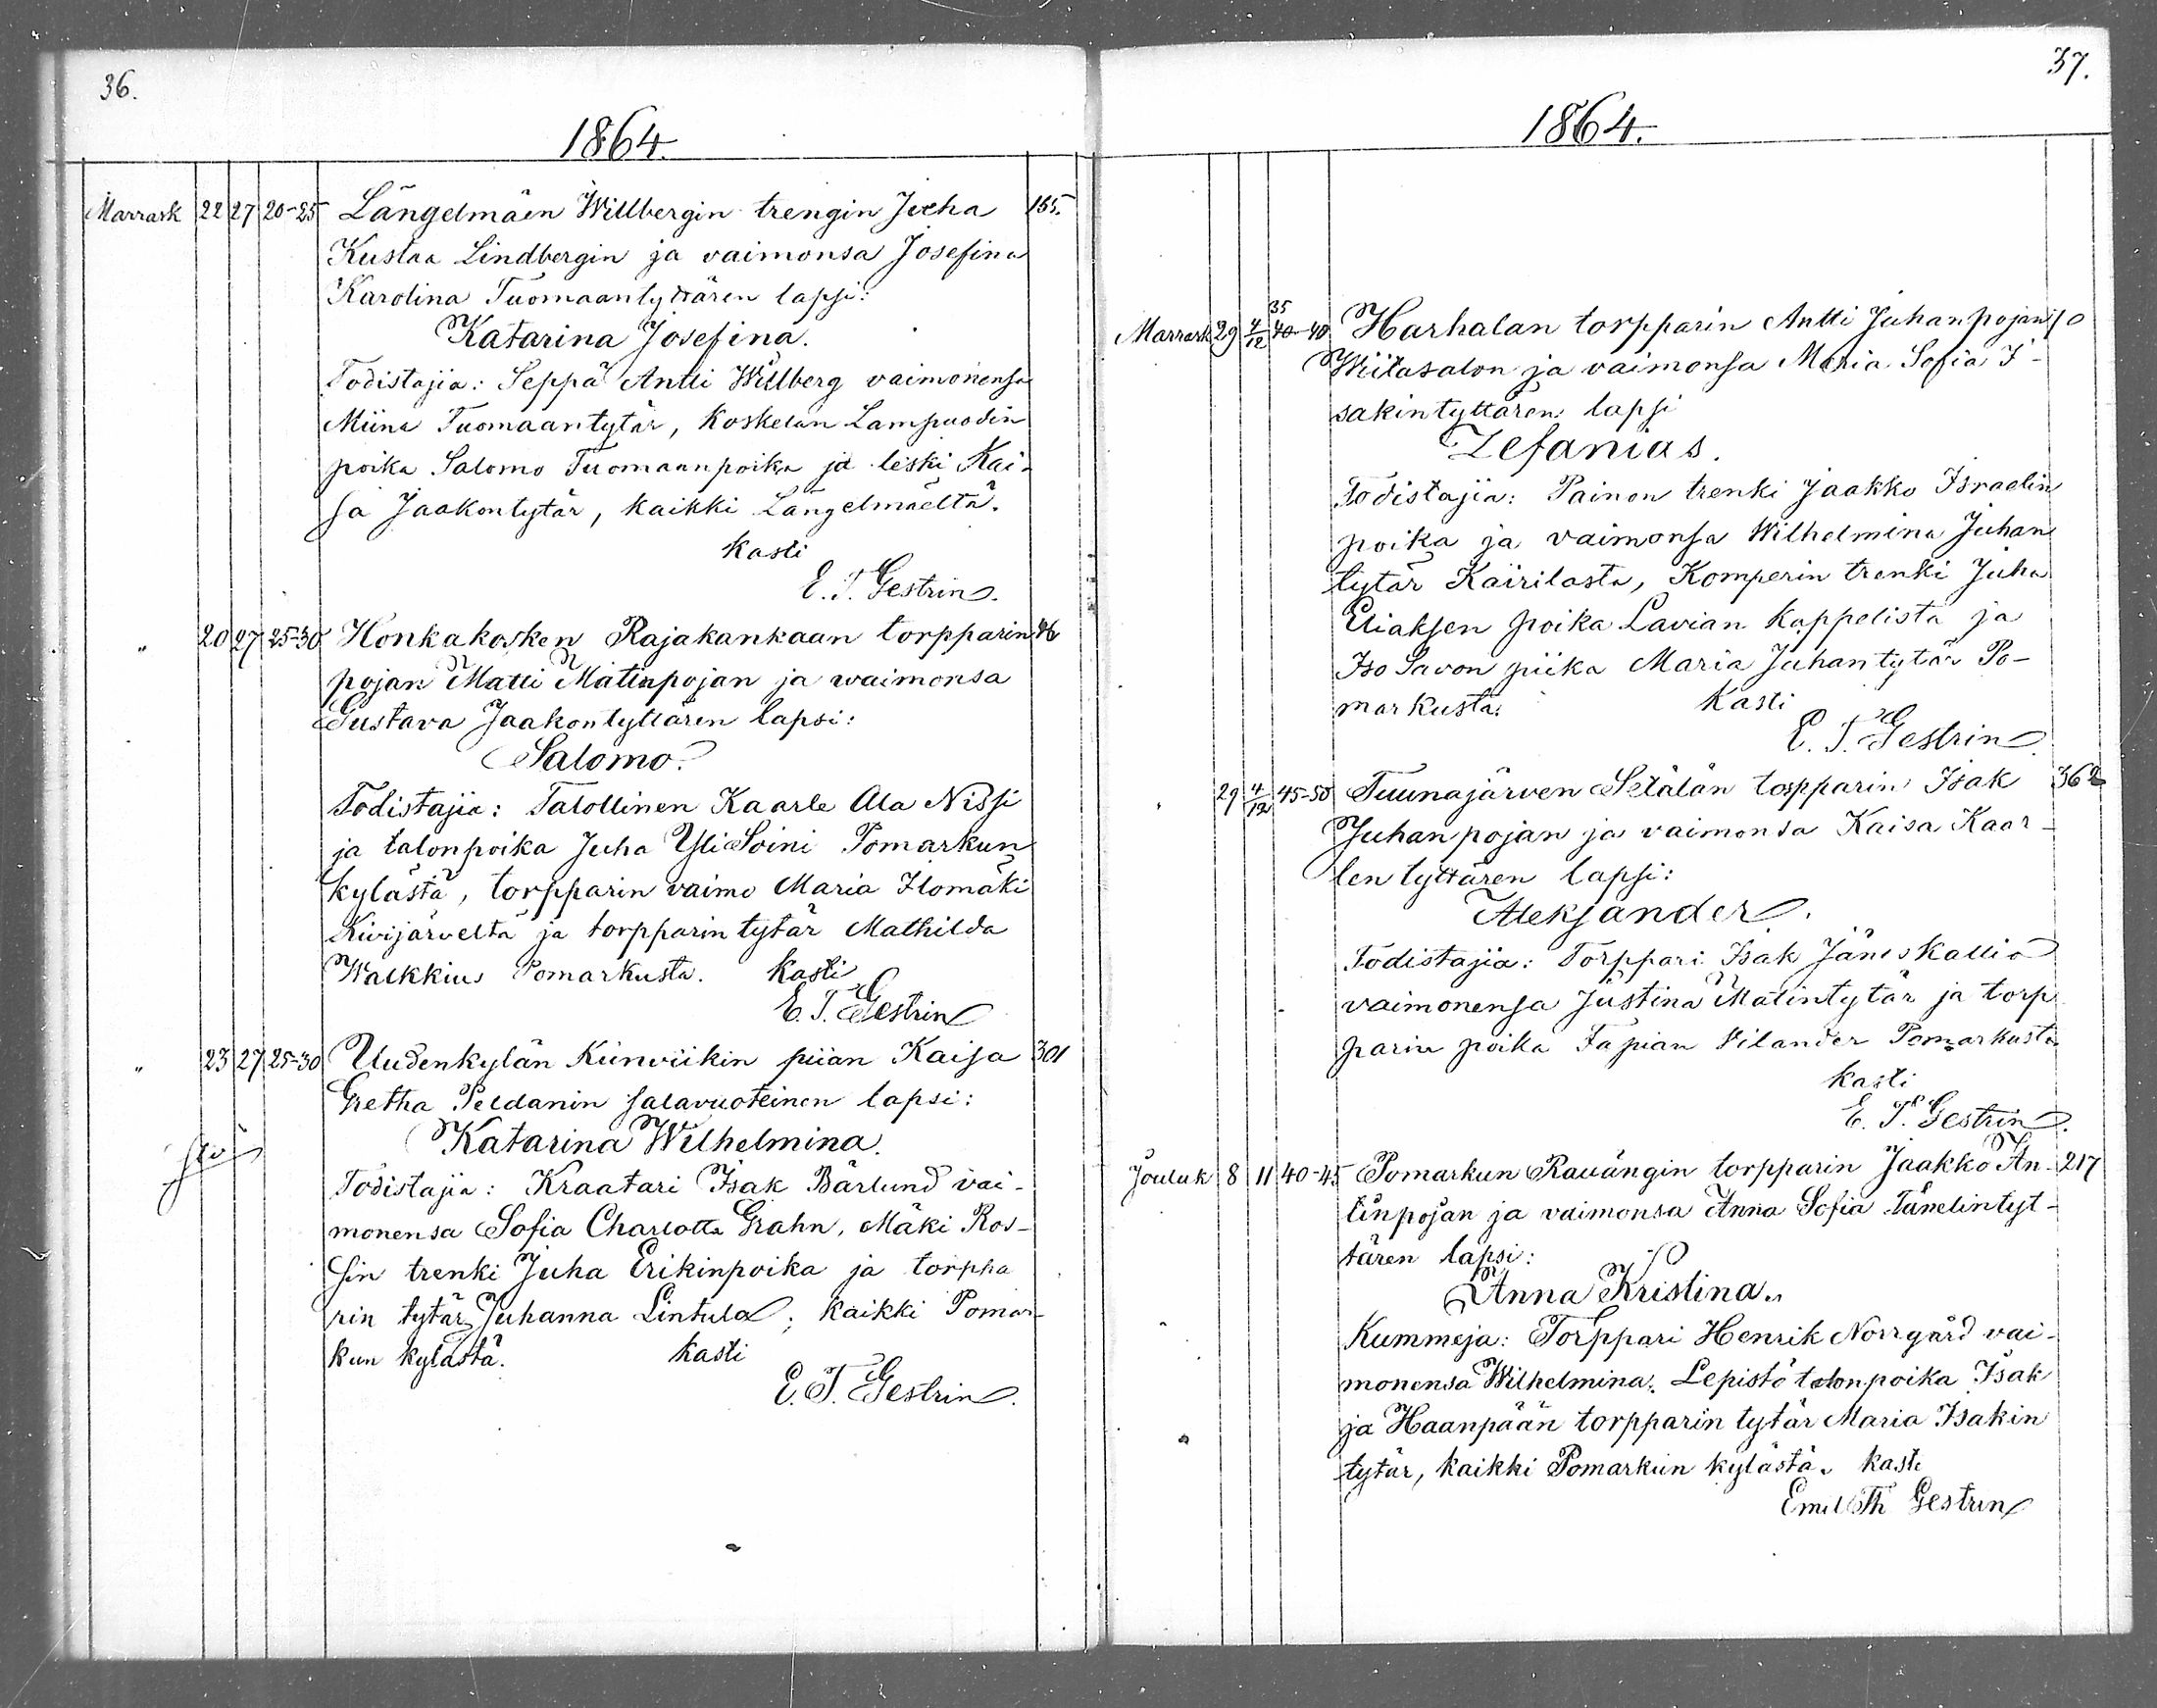 36.
1864.
Marrask 22 27 20-25 Längelmäen Willbergin trengin Juha 155.
Kustaa Lindbergin ja vaimonsa Josefina
Karolina Tuomaantyttären lapsi:
Katarina Josefina.
Todistajia: Seppä Antti Willberg vaimonensa
Miina Tuomaantytär, Koskelan Lampuodin
poika Salomo Tuomaanpoika ja leski Kai-
sa Jaakontytär, kaikki Längelmäeltä.
kasti
E. T. Gestrin.
" 20 27 25-30 Honkakosken Rajakankaan torpparin
pojan Matti Matinpojan ja waimonsa
Gustava Jaakontyttären lapsi:
Salomo.
Todistajia: Talollinen Kaarle Ala Nissi
ja talonpoika Juha Yli Soini Pomarkun
kylästä, torpparin vaimo Maria Ilomäki
Kivijärveltä ja torpparin tytär Mathilda
Walkkius Pomarkusta. kasti
E. T. Gestrin
" 23 27 25-30 Uudenkylän Kiinviikin piian Kaisa 301
Gretha Peldanin salavuoteinen lapsi:
Katarina Wilhelmina.
Todistajia: Kraatari Isak Bärlund vai-
monensa Sofia Charlotta Grahn, Mäki Ros-
sin trenki Juha Erikinpoika ja torppa
rin tytär Juhanna Lintula; kaikki Pomar-
kun kylästä. kasti
E. T. Gestrin.
37.
1864.
35
Marrask 29 4/12 40-40 Harhalan torpparin Antti Juhanpojan 10
Wiitasalon ja vaimonsa Maria Sofia I-
sakintyttären lapsi
Zefanias.
Todistajia: Painon trenki Jaakko Israelin
poika ja vaimonsa Wilhelmina Juhan
tytär Kairilasta, Komperin trenki Juha
Eliaksen poika Lavian kappelista ja
Iso Savon piika Maria Juhantytär Po-
markusta. Kasti
E. T. Gestrin.
" 29 4/12 45-50 Tuunajärven Setälän torpparin Isak 362
Juhanpojan ja vaimonsa Kaisa Kaar-
len tyttären lapsi:
Aleksander.
Todistajia: Torppari Isak Jäneskallio
vaimonensa Justina Matintytär ja torp
parin poika Tapian Silander Pomarkusta
kasti
E. T. Gestrin.
Jouluk 8 11 40-45 Pomarkun Rauängin torpparin Jaakko An- 217
tinpojan ja vaimonsa Anna Sofia Tanelintyt-
tären lapsi:
Anna Kristina.
Kummeja: Torppari Henrik Norrgård vai-
monensa Wilhelmina. Lepistö talonpoika Isak
ja Haanpään torpparin tytär Maria Isakin
tytär, kaikki Pomarkun kylästä. kasti
Emil Th Gestrin